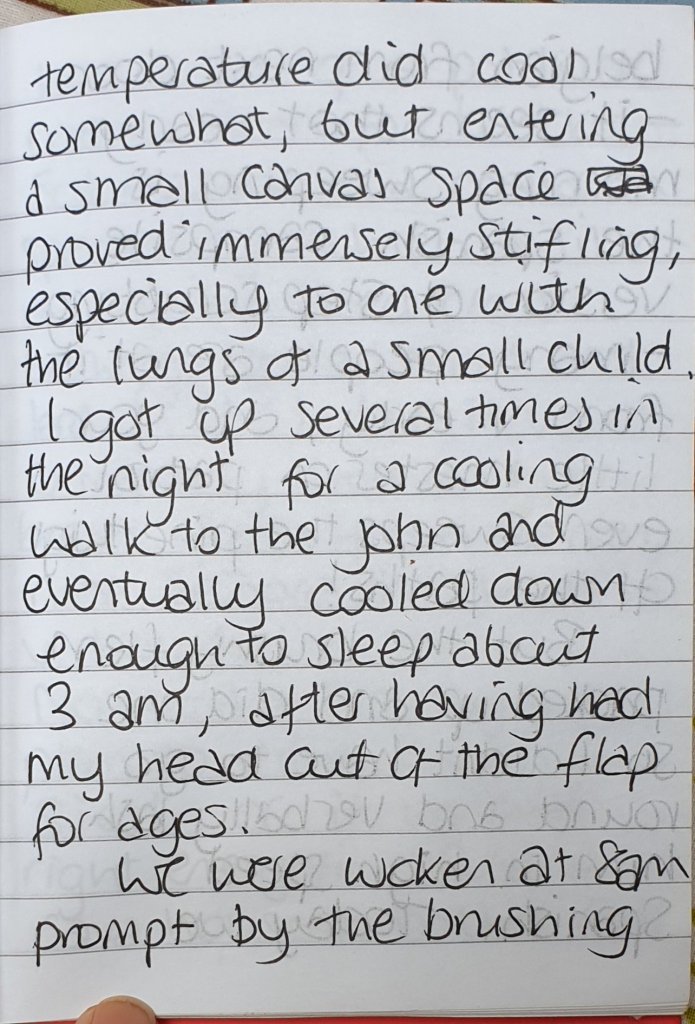 temperature did cool
somewhat, but entering
a small canvas space
proved immensely stifling,
especially to one with
the lungs of a small child.
I got up several times in
the night for a cooling
walk to the john and
eventually cooled down
enough to sleep about
3 am, after having had
my head out of the flap
for ages.
We were woken at 8am
prompt by the brushing